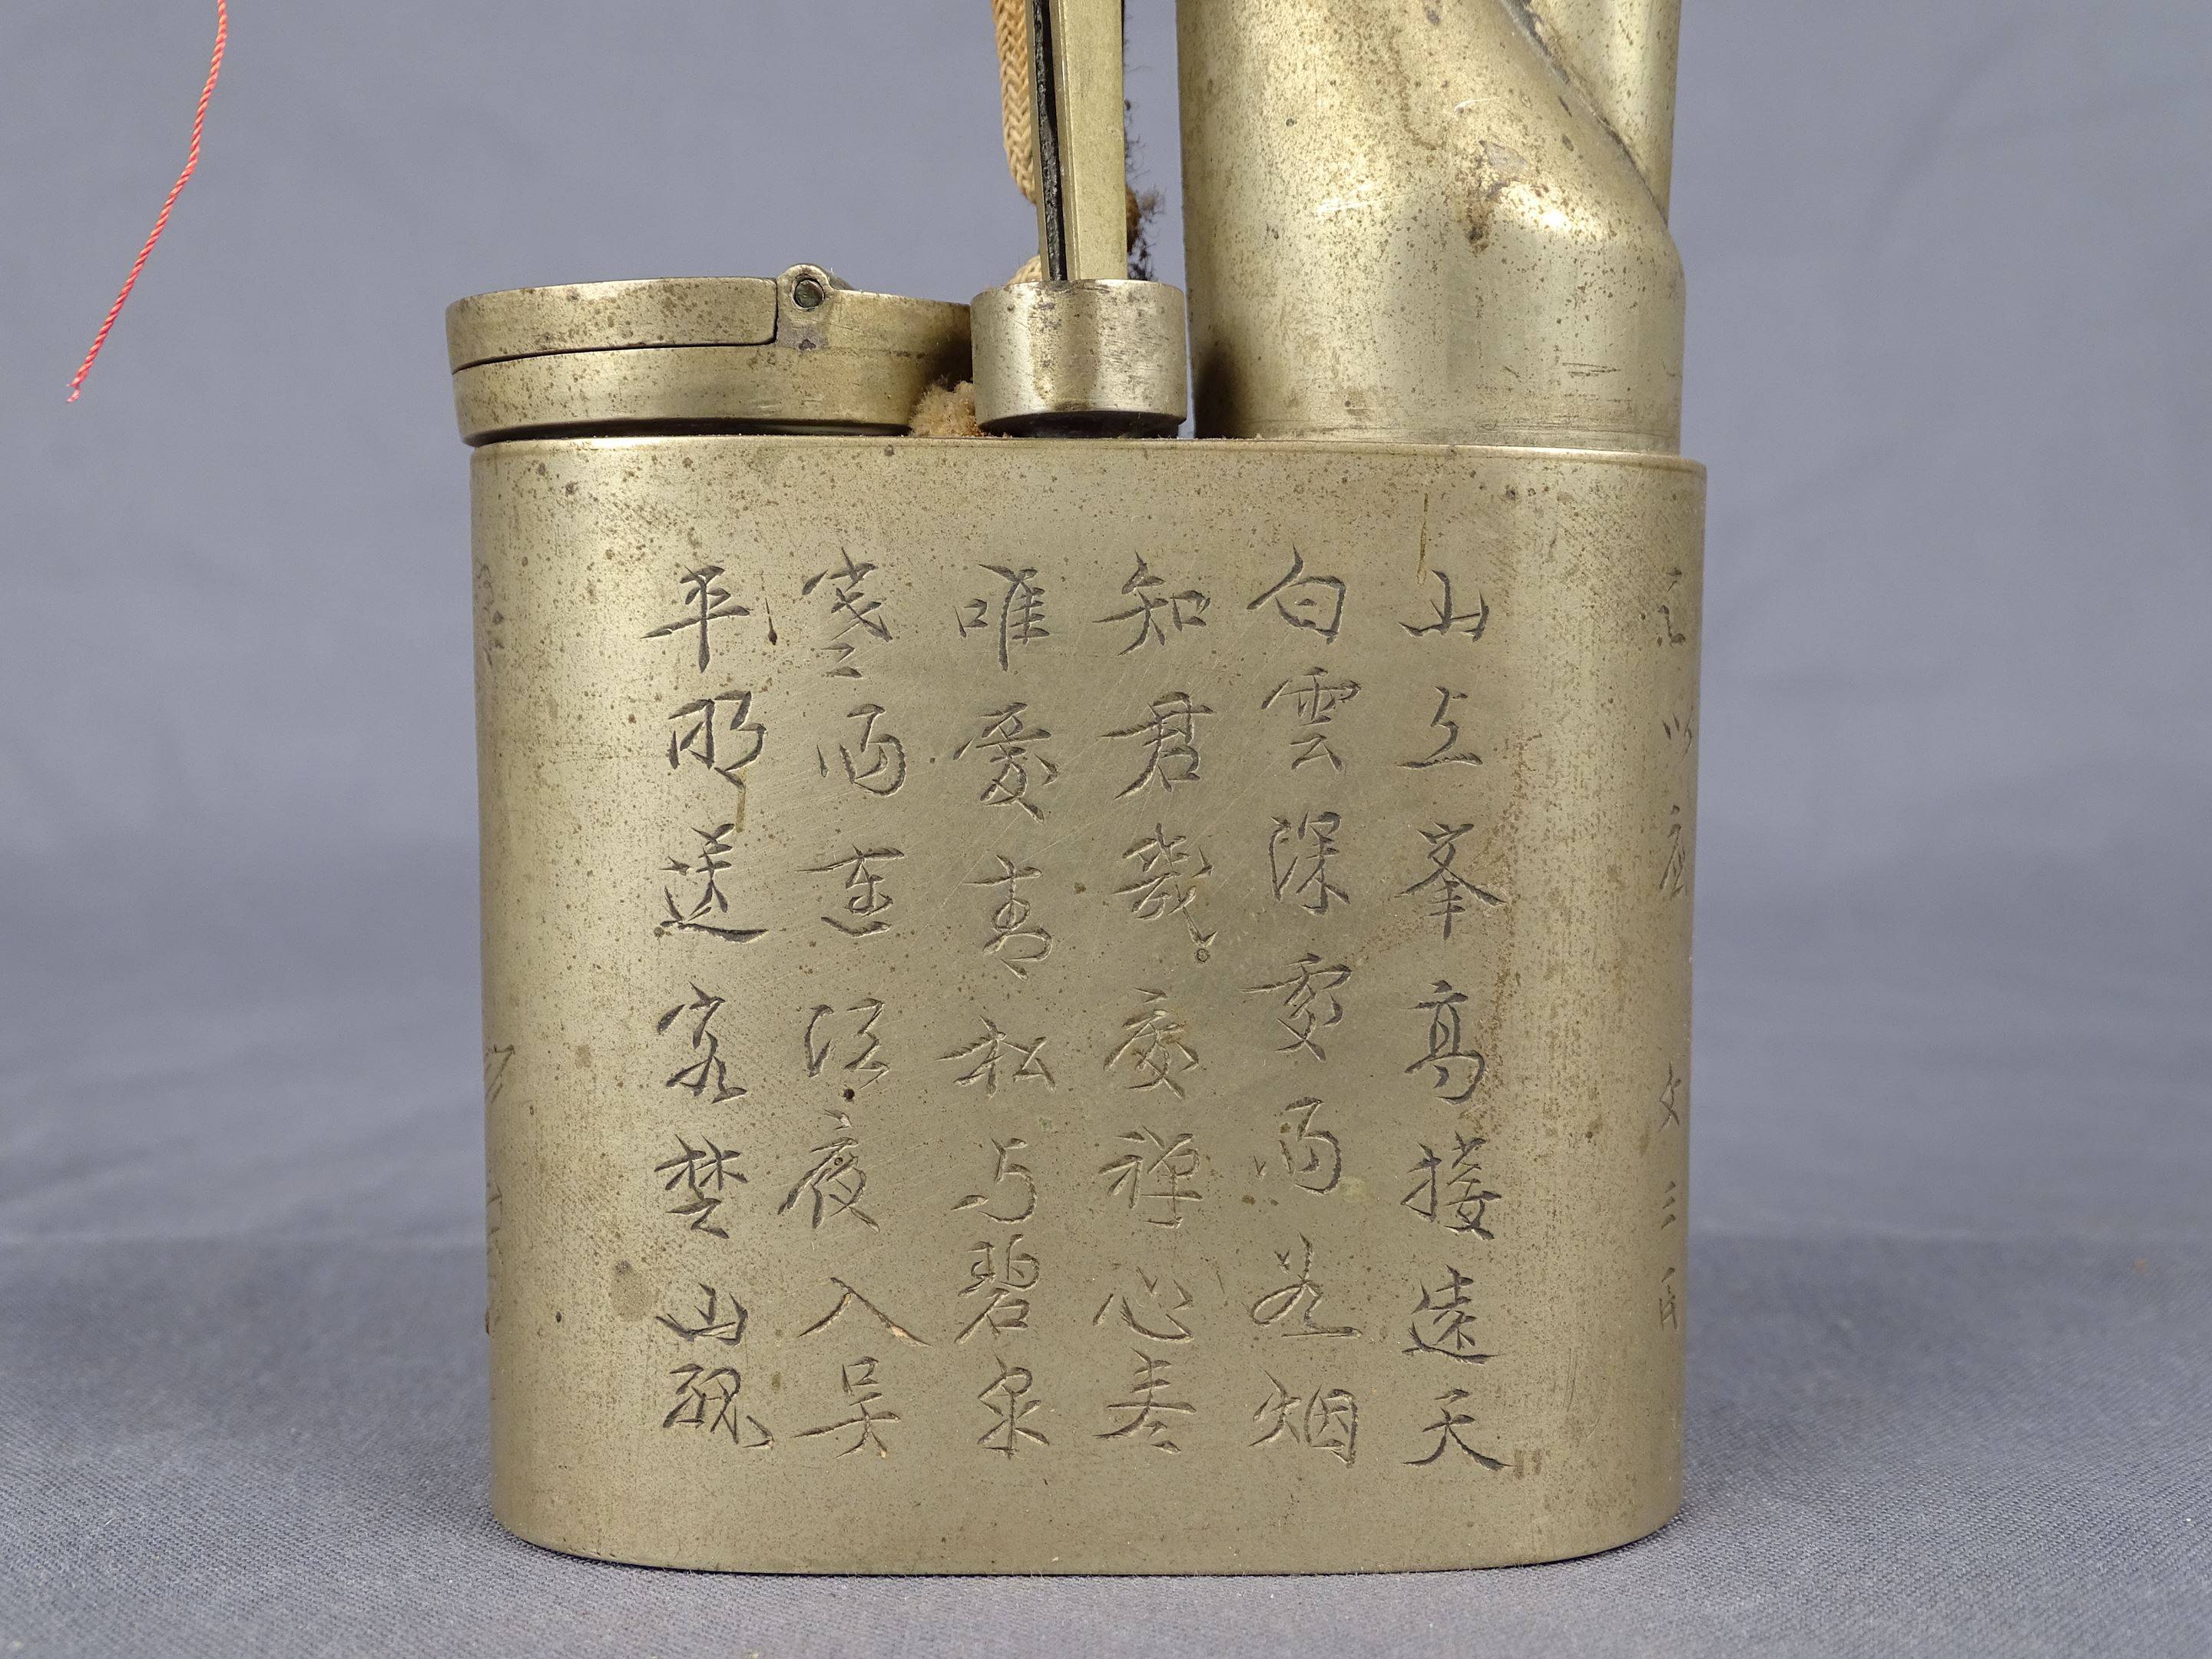 山上峯高接遠天
白雲深處雨烟
知君幾禅心
唯爱青松与碧泉
寒雨连江夜入吴
平明送客楚山孤